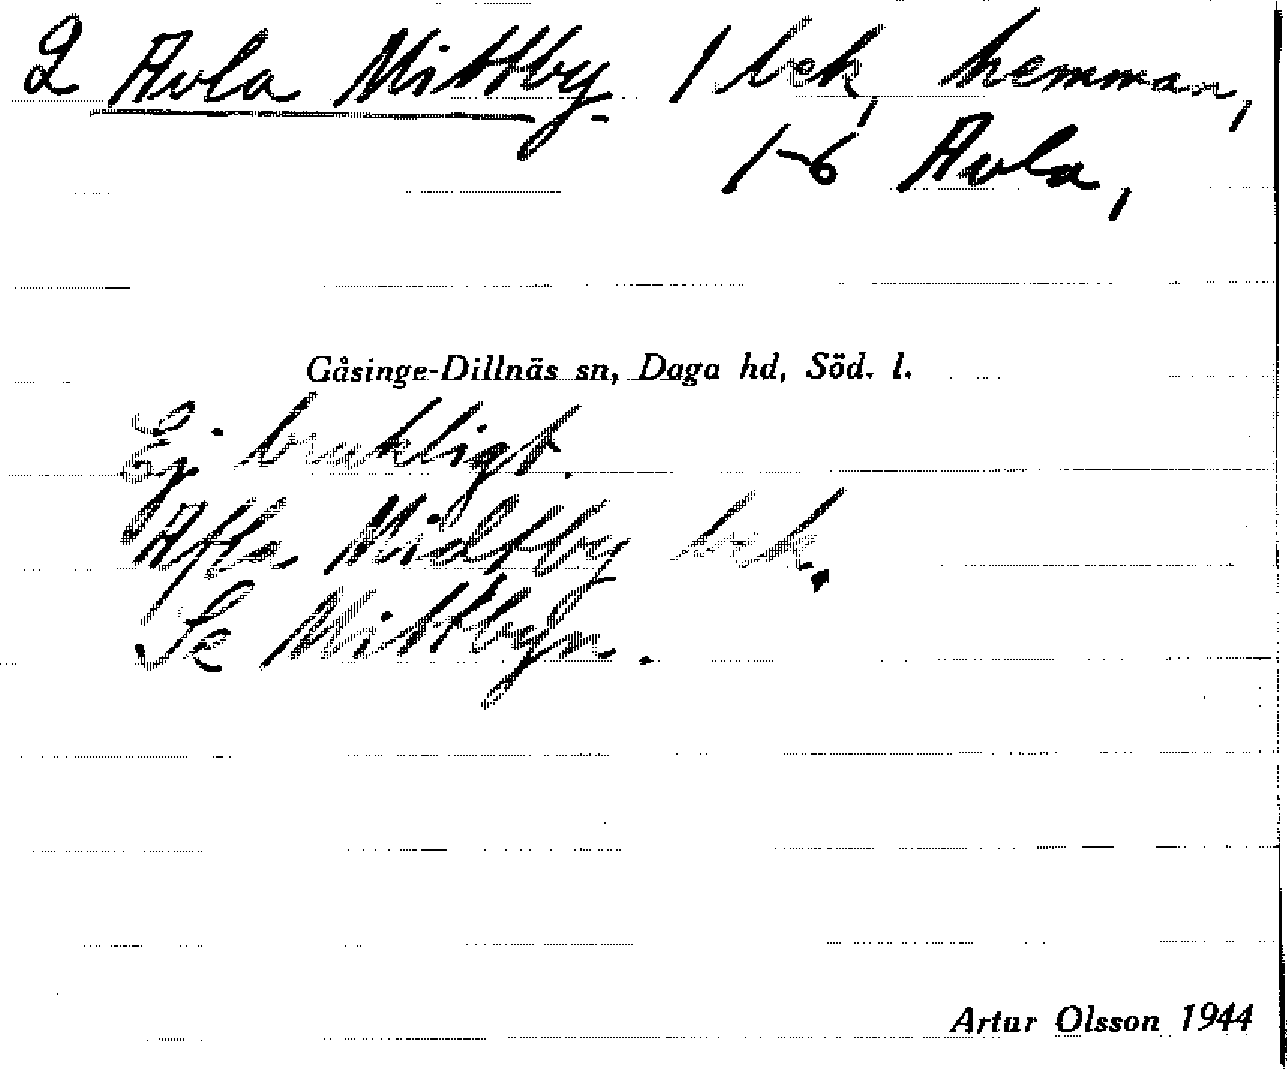 2 Avla Mittby 1 bek, hemman,
1-6 Avla,
Gåsinge-Dillnäs sn, Daga hd, Söd. l.
Ej brukligt.
Midtby bek.
Se Mittbyn.
Artur Olsson 1944